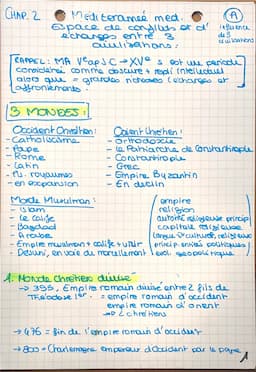 CHAP. 2 • Méditerranée med.
Espace de conflits et d'
échanges entre 3
civilisations.
A
influence
de 3
civilisations
RAPPEL: MA Ve apJC → XVe s est un periode
considérée comme obscure + recul intellectuel
alors que = grandes richesses (échanges et
affrontements.
3 MONDES :
Occident Chrétien:
- Catholicisme
- Pape
- Rome
- Latin
- nx. royaumes
- en expansion
Orient Chrétien:
- orthodoxie
- le Patriarche de Constantinople
- Constantinople
- Grec
- Empire Byzantin
- En déclin
Monde Musulman:
- Islam
- le Calife
- Bagdad
- Arabe
- Empire musulman + calife + vizir
- Désuni, en voie de morcellement
empire
religion
autorité religieuse princip.
capitale religieuse
langue culturelle, religieuse
princip. entités politiques
évol. géopolitique
1. Monde chrétien divisé
→ 395, Empire romain divisé entre 2 fils de
Théodose Ier. = empire romain d'occident
empire romain d'orient
→ 2 chrétiens
→ 476 = fin de l'empire romain d'occident
→ 800 = Charlemagne empereur d'Occident par le pape
1